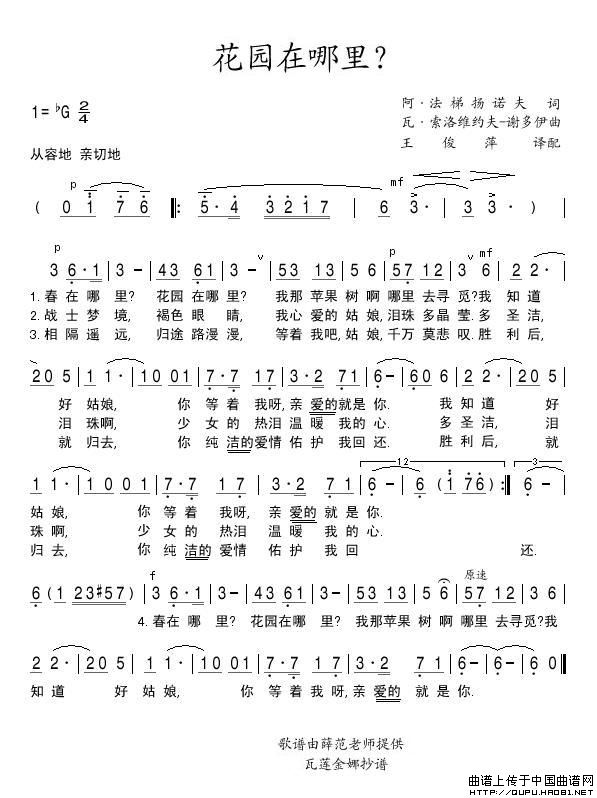 花园在哪里?
1=♭G 2/4
阿·法梯扬诺夫 词
瓦·索洛维约夫-谢多伊曲
王俊萍 译配
从容地 亲切地
p mf
( 0 1 7 6 ‖: 5· 4 3 2 1 7 | 6 3· | 3 3· )
p p mf
3 6·1 | 3 - | 43 61 | 3 - | 53 13 | 5 6 | 57 12 | 3 6 | 2 2· |
1.春在哪里? 花园在哪里? 我那苹果树啊哪里去寻觅?我知道
2.战士梦境, 褐色眼睛, 我心爱的姑娘,泪珠多晶莹.多圣洁,
3.相隔遥远, 归途路漫漫, 等着我吧,姑娘,千万莫悲叹.胜利后,
20 5 | 1 1· | 10 01 | 7·7 17 | 3·2 71 | 6 - | 60 6 | 2 2· | 20 5 |
好姑娘, 你等着我呀,亲爱的就是你. 我知道好
泪珠啊, 少女的热泪温暖我的心. 多圣洁,泪
就归去, 你纯洁的爱情佑护我回还. 胜利后,就
12 3
1 1· | 1 0 0 1 | 7·7 1 7 | 3·2 7 1 | 6 - | 6 (1 76) :‖ 6 - |
姑娘, 你等着我呀,亲爱的就是你.
珠啊, 少女的热泪温暖我的心.
归去, 你纯洁的爱情佑护我回 还.
f 原速
6 (1 23#57) | 3 6·1 | 3 - | 43 61 | 3 - | 53 13 | 5 6 | 57 12 | 3 6 |
4.春在哪里? 花园在哪里? 我那苹果树啊哪里去寻觅?我
2 2· | 20 5 | 1 1· | 10 01 | 7·7 17 | 3·2 71 | 6 - | 6 - | 6 0 ‖
知道好姑娘, 你等着我呀,亲爱的就是你.
歌谱由薛范老师提供
瓦莲金娜抄谱
曲谱上传于中国曲谱网
HTTP://QUPU.HAO81.NET